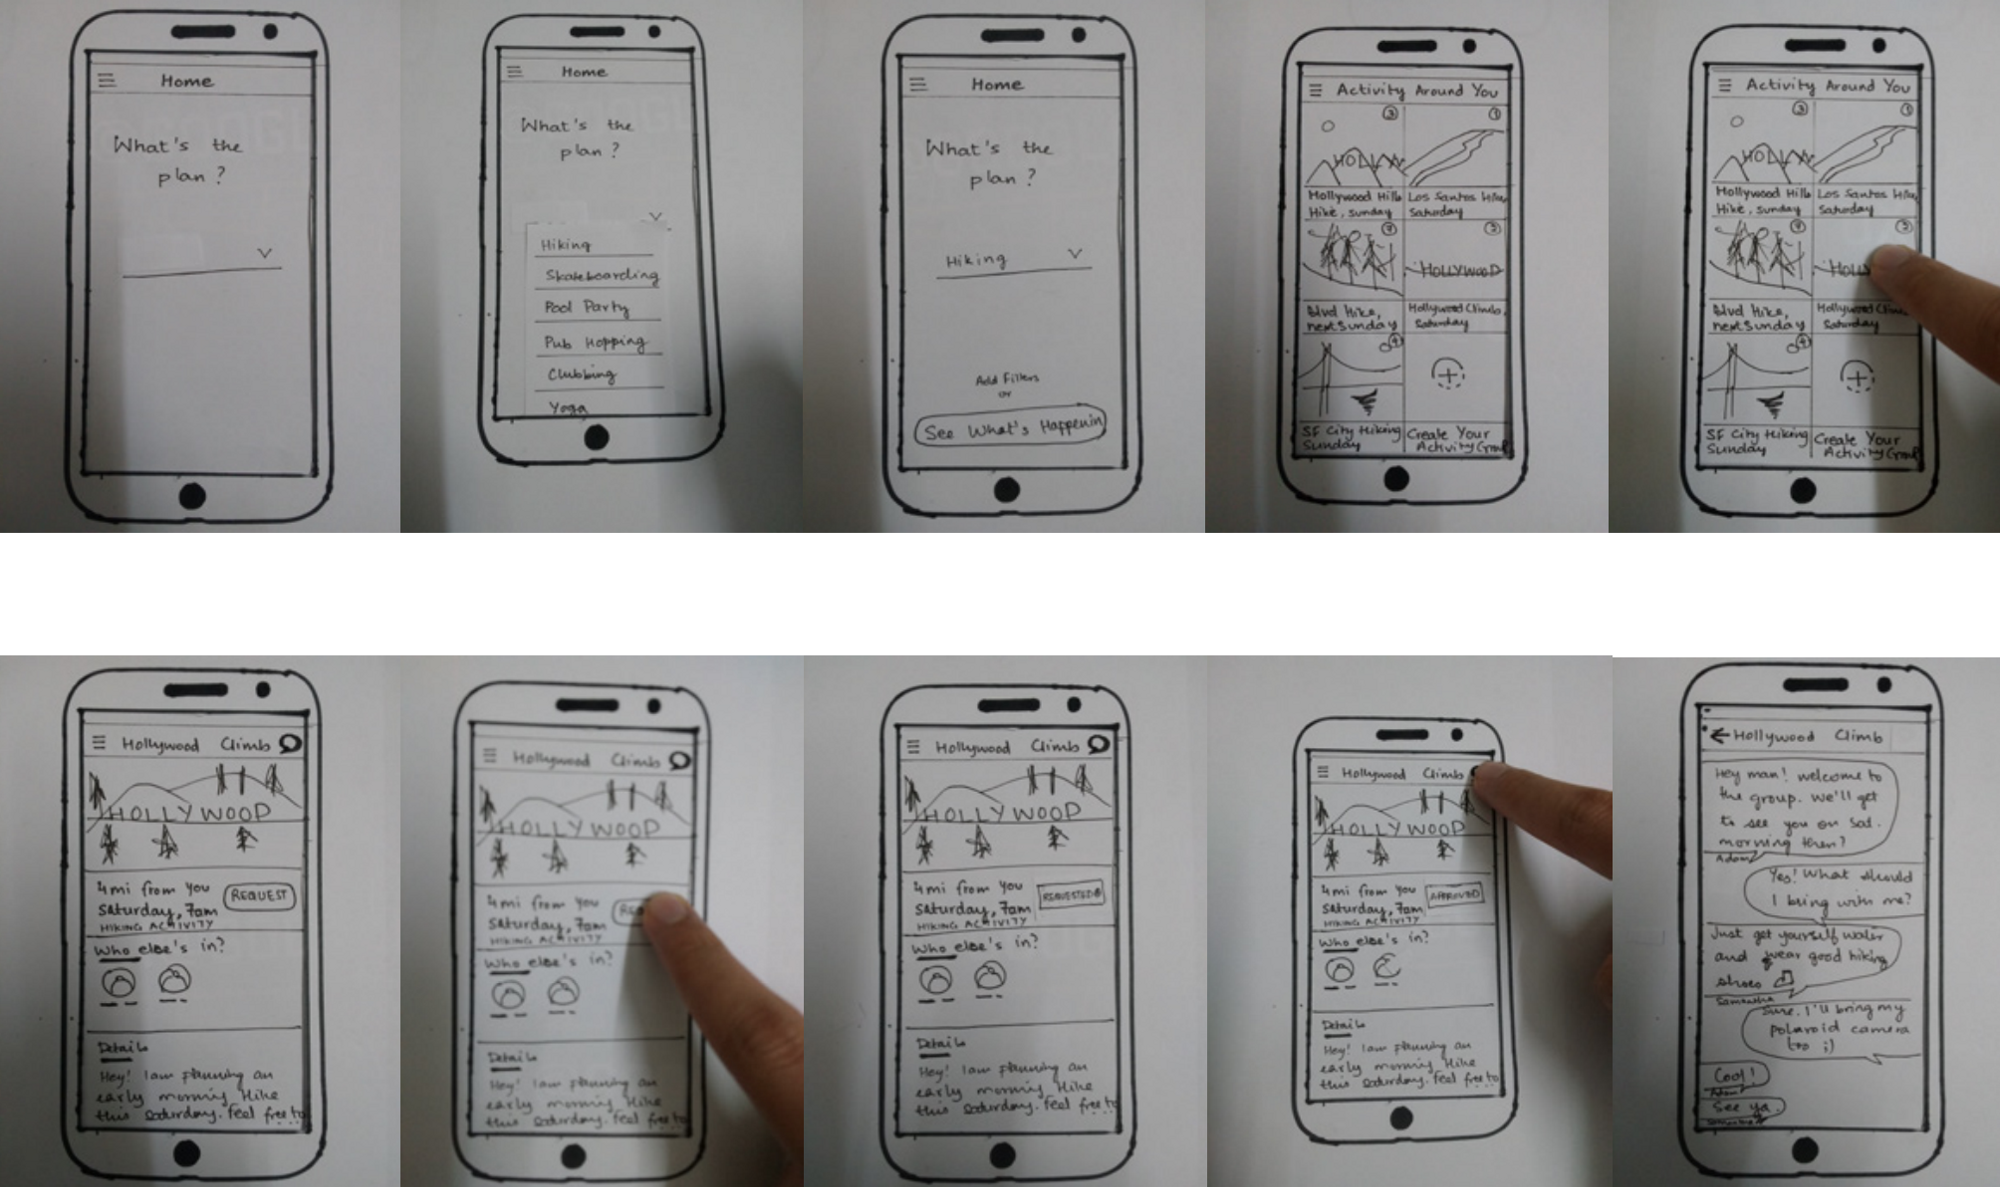 Home
What's the
plan?
Home
What's the
plan?
Hiking
Skateboarding
Pool Party
Pub Hopping
Clubbing
Yoga
Home
What's the
plan?
Hiking
Add Filters
or
See What's Happenin
Activity Around You
3
1
HOLLYW
Hollywood Hills
Hike, Sunday
Los Santos Hike,
Saturday
7
5
HOLLYWOOD
Blvd Hike,
next Sunday
Hollywood Climb,
Saturday
4
+
SF City Hiking
Sunday
Create Your
Activity Group
Activity Around You
3
1
HOLLYW
Hollywood Hills
Hike, Sunday
Los Santos Hike,
Saturday
7
5
HOLLY
Blvd Hike,
next Sunday
Hollywood Climb
Saturday
4
+
SF City Hiking
Sunday
Create Your
Activity Group
Hollywood Climb
HOLLYWOOD
4mi from You
REQUEST
Saturday, 7am
HIKING ACTIVITY
Who else's in?
Details
Hey! I am planning an
early morning Hike
this Saturday. Feel free to
Hollywood Climb
HOLLYWOOD
4mi from You
REQ
Saturday, 7am
HIKING ACTIVITY
Who else's in?
Details
Hey! I am planning an
early morning Hike
this Saturday. Feel free to
Hollywood Climb
HOLLYWOOD
4mi from You
REQUESTED
Saturday, 7am
HIKING ACTIVITY
Who else's in?
Details
Hey! I am planning an
early morning Hike
this Saturday. Feel free to
Hollywood Climb
HOLLYWOOD
4mi from You
APPROVED
Saturday, 7am
HIKING ACTIVITY
Who else's in?
Details
Hey! I am planning an
early morning Hike
this Saturday. Feel free to
Hollywood Climb
Hey man! welcome to
the group. We'll get
to see you on Sat.
morning then?
Adam
Yes! What should
I bring with me?
Just get yourself water
and wear good hiking
shoes
Samantha
Sure. I'll bring my
polaroid camera
too ;)
Cool!
Adam
See ya.
Samantha